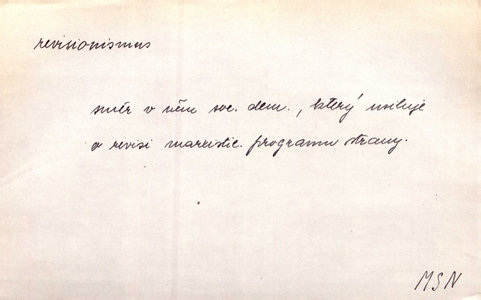 revisionismus
směr v něm soc. dem., který usiluje
o revisi marxistic. programu strany.
MSN